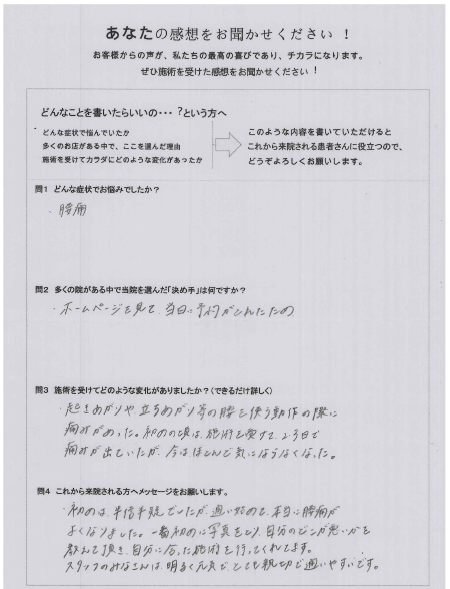 あなたの感想をお聞かせください！
お客様からの声が、私たちの最高の喜びであり、チカラになります。
ぜひ施術を受けた感想をお聞かせください！
どんなことを書いたらいいの・・・?という方へ
どんな症状で悩んでいたか
多くのお店がある中で、ここを選んだ理由
施術を受けてカラダにどのような変化があったか
このような内容を書いていただけると
これから来院される患者さんに役立つので、
どうぞよろしくお願いします。
問1 どんな症状でお悩みでしたか？
・腰痛
問2 多くの院がある中で当院を選んだ「決め手」は何ですか？
・ホームページを見て、当日に予約がとれたため
問3 施術を受けてどのような変化がありましたか？（できるだけ詳しく）
・起きあがりや、立ちあがり等の腰を使う動作の際に
痛みがあった。初めの頃は、施術を受けて、2、3日で
痛みが出ていたが、今はほとんど気にならなくなった。
問4 これから来院される方へメッセージをお願いします。
・初めは、半信半疑でしたが、通い始めて、本当に腰痛が
よくなりました。一番初めに写真をとり、自分のどこが悪いかを
教えて頂き、自分に合った施術を行ってくれてます。
スタッフのみなさんは、明るく元気で、とても親切で通いやすいです。